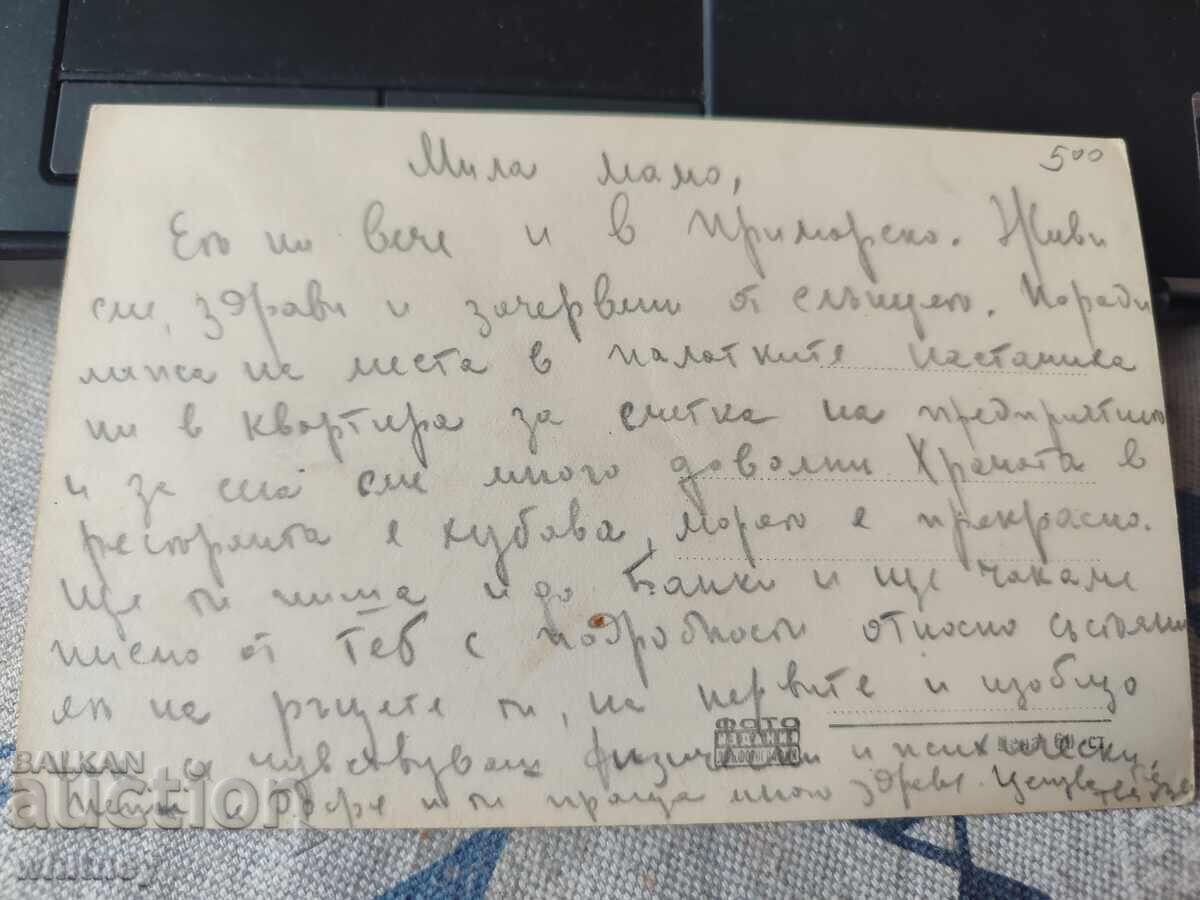 Мила мамо,
500
Ето ни вече и в Приморско. Живи
сме, здрави и зачервени от слънцето. Поради
липса на места в палатките настаниха
ни в квартира за сметка на предприятието
и за сега сме много доволни. Храната в
ресторанта е хубава, морето е прекрасно.
Ще ти пиша и до Банки и ще чакаме
писмо от Теб с подробности относно състояни
ето на ръцете ти, на нервите и изобщо
се чувствуваш физически и психически,
и ти праща много здраве. Целува те
ФОТО
BALKAN
auction
whitney